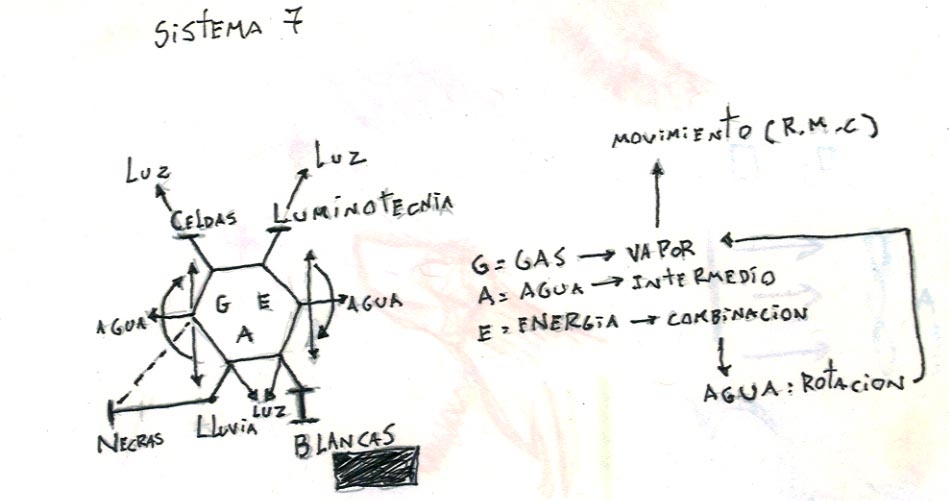 SistEMA 7
MOViMiENtO (R.M.C)
Luz
Luz
CELDAS
LUMiNOtECNiA
G= GAS → VAPOR
A= AGUA → INtERMEDiO
E= ENERGiA → COMBiNACiON
AGUA : ROtACiON
G E
A
AGUA
AGUA
NEGRAS
LLuViA
Luz
BLANCAS